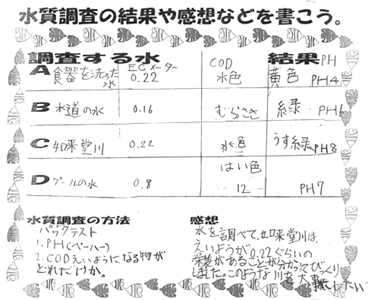 水質調査の結果や感想などを書こう。
調査する水 結果
ECメーター COD PH
A 食器を洗った水 0.22 水色 黄色 PH4
B 水道の水 0.16 むらさき 緑 PH6
C 如来堂川 0.22 水色 うす緑 PH8
D プールの水 0.8 はい色 12 PH7
水質調査の方法
パックテスト
1.PH(ペーハー)
2.CODえいようになる物が
どれだけか。
感想
水を調べて、如来堂川は
えいようが0.22ぐらいの
栄養があることが分かってびっくり
しました。このような川を大事にしたい